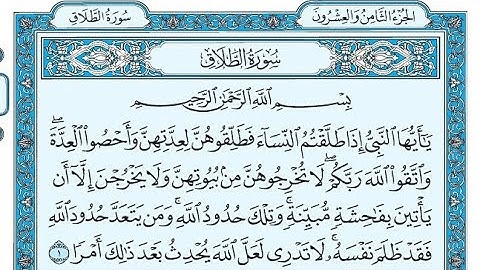 الجزء الثامن والعشرون
سورة الطلاق
سُورَةُ الطَّلَاقِ
بِسْمِ اللَّهِ الرَّحْمَٰنِ الرَّحِيمِ
يَٰٓأَيُّهَا النَّبِىُّ إِذَا طَلَّقْتُمُ النِّسَآءَ فَطَلِّقُوهُنَّ لِعِدَّتِهِنَّ وَأَحْصُوا۟ الْعِدَّةَ ۖ
وَاتَّقُوا۟ اللَّهَ رَبَّكُمْ ۖ لَا تُخْرِجُوهُنَّ مِنۢ بُيُوتِهِنَّ وَلَا يَخْرُجْنَ إِلَّآ أَن
يَأْتِينَ بِفَٰحِشَةٍ مُّبَيِّنَةٍ ۚ وَتِلْكَ حُدُودُ اللَّهِ ۚ وَمَن يَتَعَدَّ حُدُودَ اللَّهِ
فَقَدْ ظَلَمَ نَفْسَهُۥ ۚ لَا تَدْرِى لَعَلَّ اللَّهَ يُحْدِثُ بَعْدَ ذَٰلِكَ أَمْرًا ١